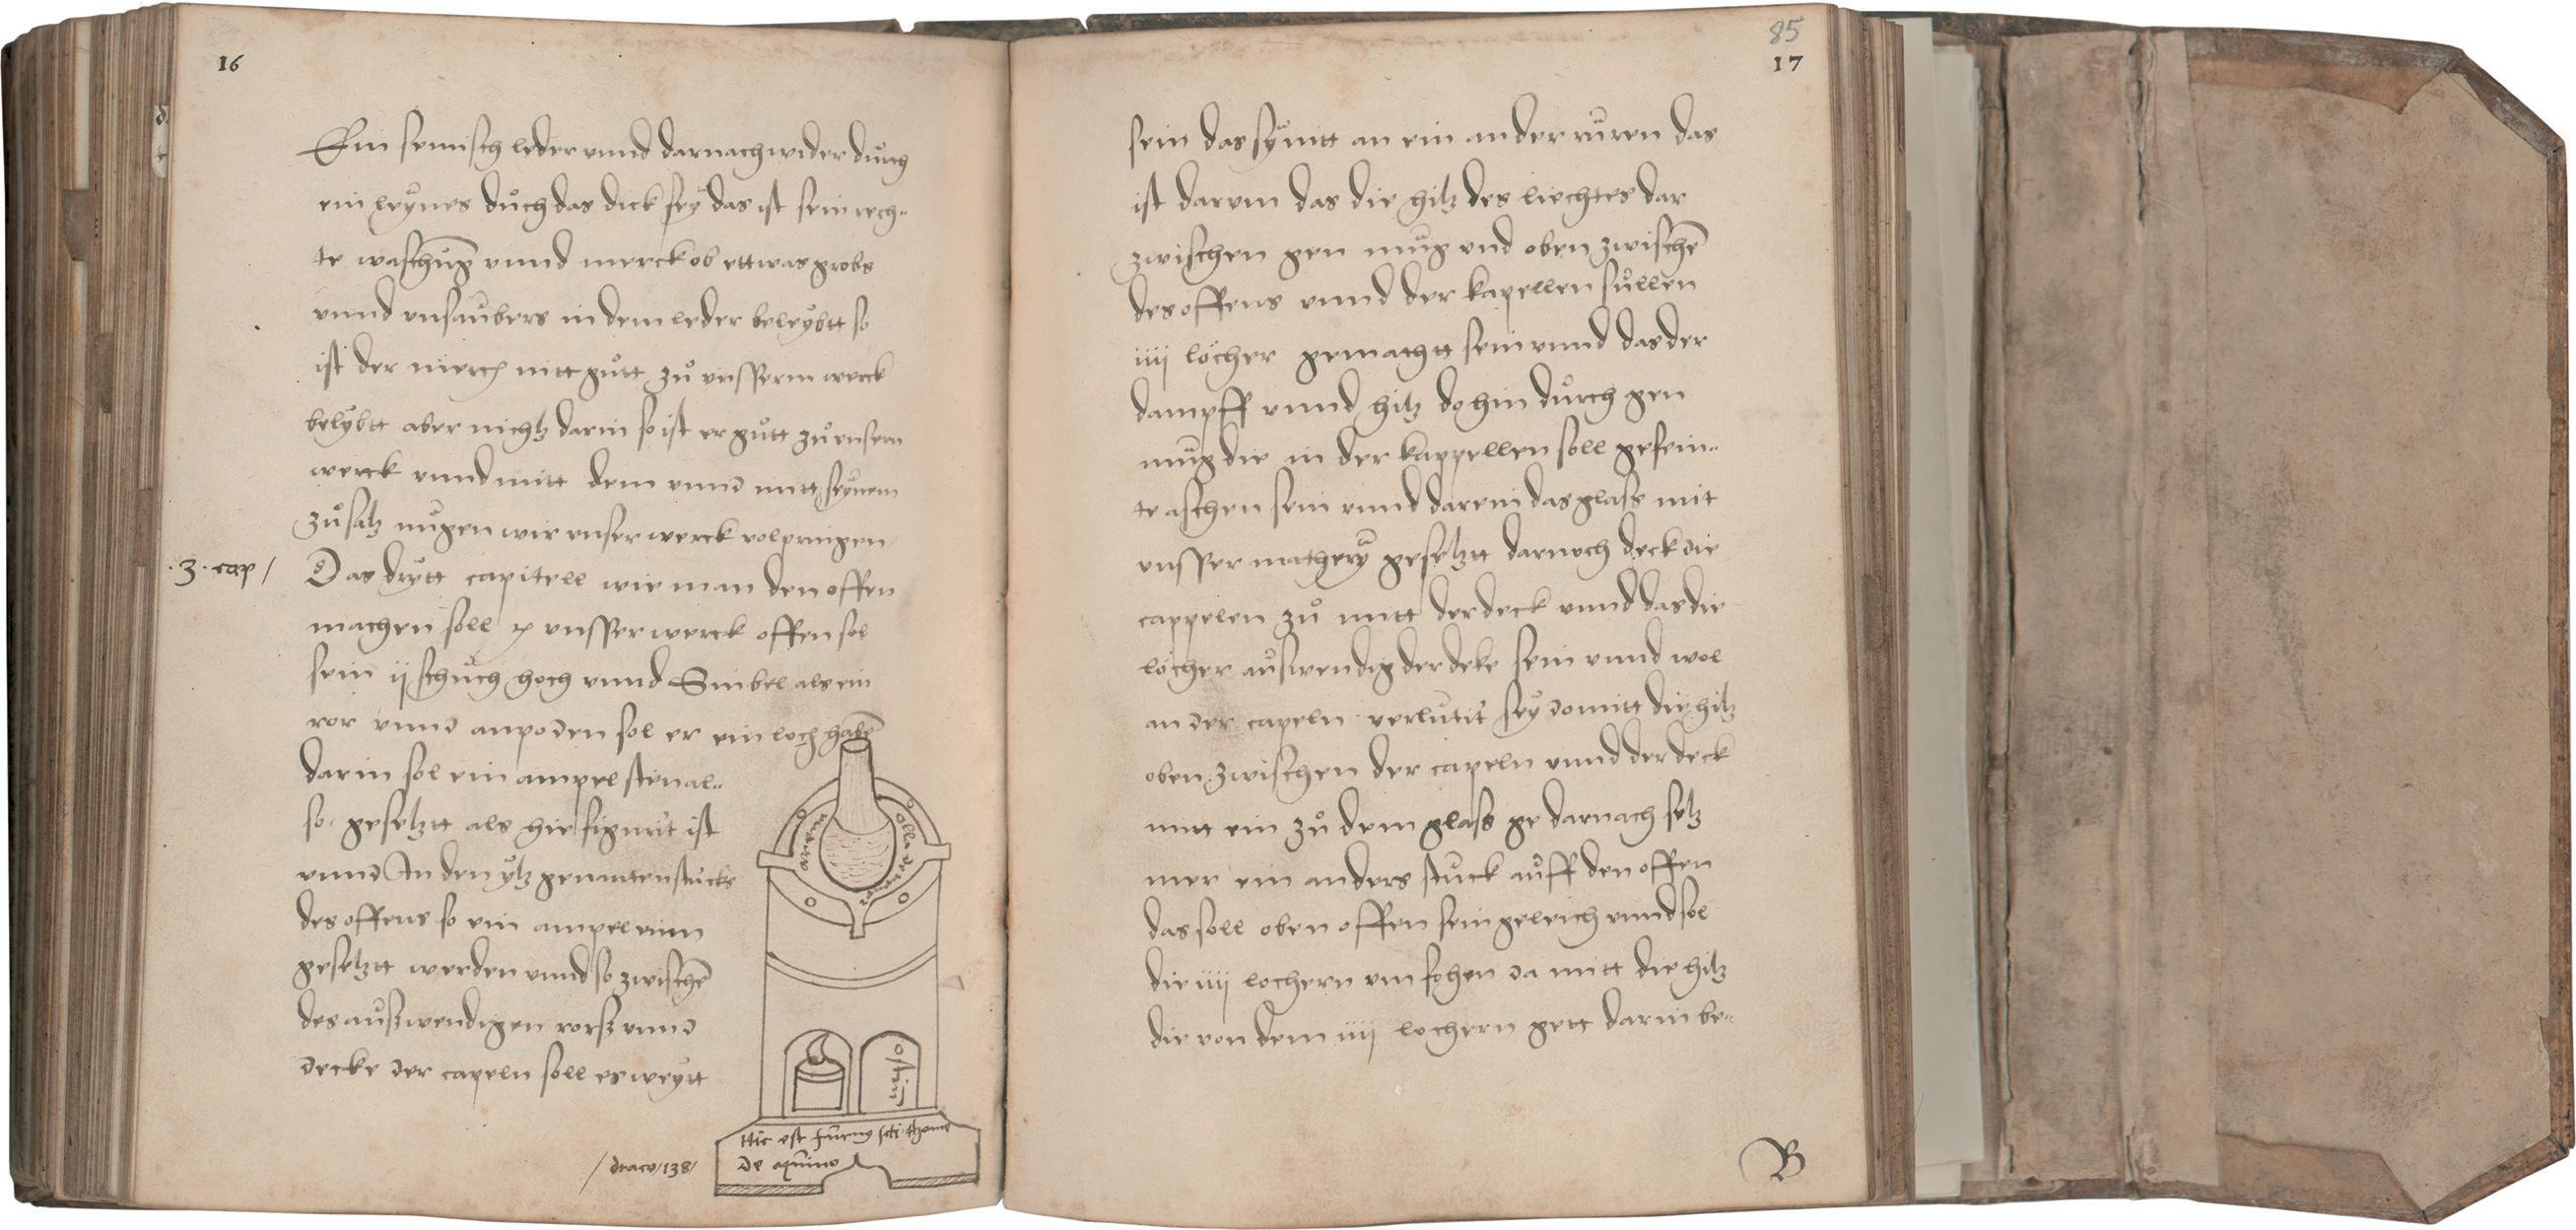 16
Ein semisch leder vnnd darnach wider durch
ein leynes duch das dick sey das ist sein rech-
te waschung vnnd merck ob ettwas grobs
vnnd vnsaubers in dem leder beleybtt so
ist der mercz nitt gutt zů vnsserm werck
belybtt aber nichtz darin so ist er gutt zů vnsem
werck vnnd mitt dem vnnd mitt seynem
zůsatz mugen wir vnser werck volpringen
.3. cap /
Das drytt capitell wie man den offen
machen soll vnsser werck offen sol
sein ij schuch hoch vnnd Sinbel als ein
ror vnnd an poden sol er ein loch haben
darin sol ein ampel sten al-
so gesetztt als hie figurirt ist
vnnd In den ytz genanten stucks
des offens so ein ampel einn
gesetztt werden vnnd so zwischen
des auswendigen rors vnnd
decke der capeln soll es weytt
olla
ostium
Hic est furnus scti thome
de aquino
/ draco / 138 /
85
17
sein das sy nitt an ein ander ruren das
ist darum das die hitz des liechtes dar
zwischen gen mug vnd oben zwischen
des offens vnnd der kapellen sullen
iiij löcher gemachtt sein vnnd das der
dampff vnnd hitz do hin durch gen
mug die in der kappellen soll gesein-
te aschen sein vnnd darein das glass mit
vnsser mathery gesetztt darnoch deck die
cappelen zů mitt der deck vnnd das die
löcher auswendig der deke sein vnnd wol
an der capeln verlutirt sey domitt die hitz
oben zwischen der capeln vnnd der deck
nitt ein zů dem glass ge darnach setz
mer ein anders stuck auff den offen
das soll oben offen sein geleich vnnd sol
die iiij lochern vmfohen da mitt die hitz
die von dem iiij lochern gett darin be-
B